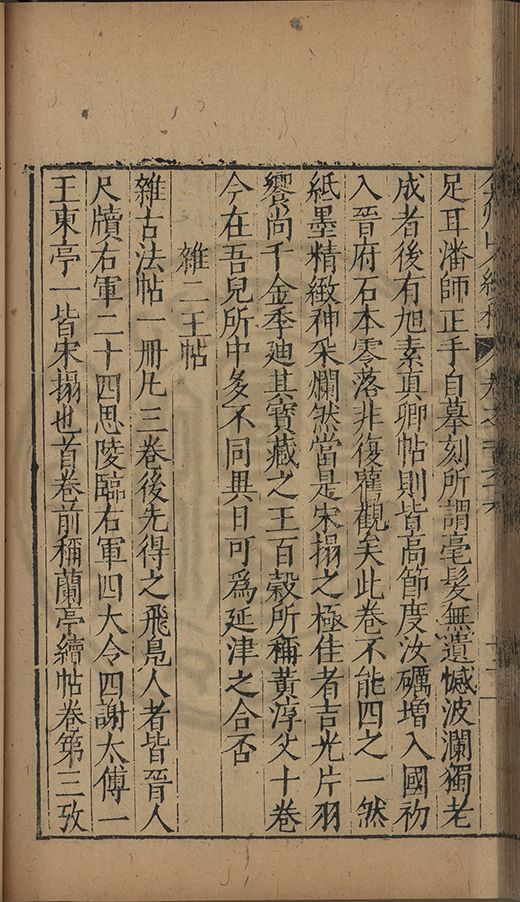 足耳潘師正手自摹刻所謂毫髮無遺憾波瀾獨老
成者後有旭素真卿帖則皆高節度汝礪增入國初
入晉府石本零落非復舊觀矣此卷不能四之一然
紙墨精緻神采爛然當是宋搨之極佳者吉光片羽
饗尚千金季廸其寶藏之王百穀所稱黃淳父十卷
今在吾兒所中多不同異日可爲延津之合否
雜二王帖
雜古法帖一冊凡三卷後先得之飛鳧人者皆晉人
尺牘右軍二十四思陵臨右軍四大令四謝太傅一
王東亭一皆宋搨也首卷前稱蘭亭續帖卷第三攷